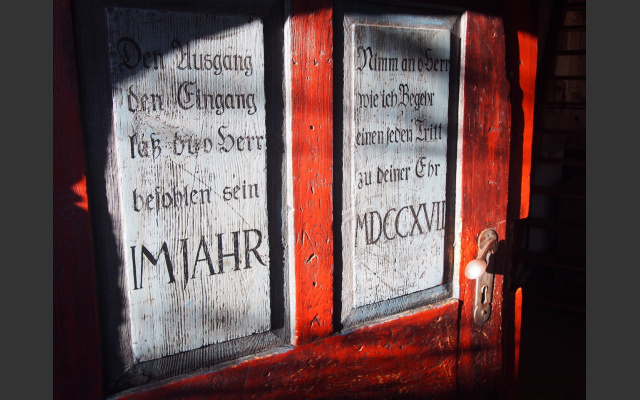 Den Ausgang
den Eingang
laß dir o Herr
befohlen sein
IM JAHR
Nimm an o Herr
wie ich Begehr
einen jeden Tritt
zu deiner Ehr
MDCCXVII